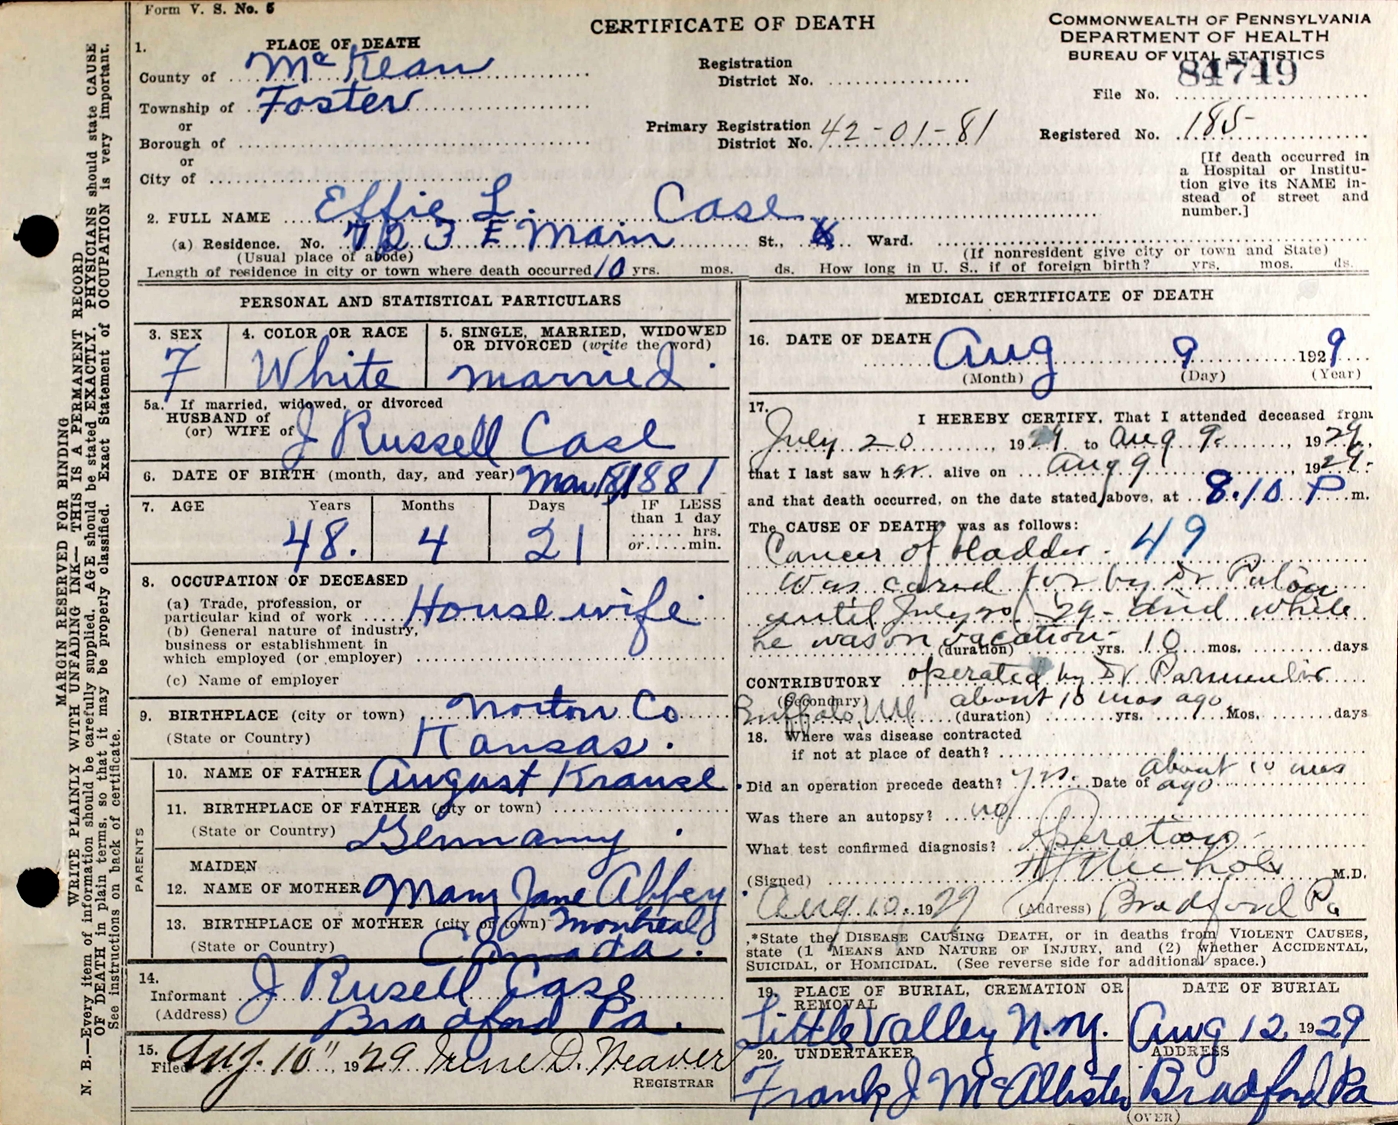 Form V. S. No. 5
CERTIFICATE OF DEATH
COMMONWEALTH OF PENNSYLVANIA
DEPARTMENT OF HEALTH
BUREAU OF VITAL STATISTICS
84749
File No.
1. PLACE OF DEATH
County of McKean
Township of Foster
or
Borough of
or
City of
Registration District No.
Primary Registration District No. 42-01-81
Registered No. 185
[If death occurred in a Hospital or Institution give its NAME instead of street and number.]
2. FULL NAME Effie L. Case
(a) Residence. No. 723 E Main St., Ward.
(Usual place of abode) (If nonresident give city or town and State)
Length of residence in city or town where death occurred 10 yrs. mos. ds. How long in U. S., if of foreign birth? yrs. mos. ds.
PERSONAL AND STATISTICAL PARTICULARS
3. SEX
F
4. COLOR OR RACE
White
5. SINGLE, MARRIED, WIDOWED OR DIVORCED (write the word)
married
5a. If married, widowed, or divorced
HUSBAND of
(or) WIFE of J Russell Case
6. DATE OF BIRTH (month, day, and year) Mar 18 1881
7. AGE Years Months Days IF LESS than 1 day
48. 4 21 hrs. or min.
8. OCCUPATION OF DECEASED
(a) Trade, profession, or particular kind of work House wife
(b) General nature of industry, business or establishment in which employed (or employer)
(c) Name of employer
9. BIRTHPLACE (city or town) Norton Co
(State or Country) Kansas.
PARENTS
10. NAME OF FATHER August Krause
11. BIRTHPLACE OF FATHER (city or town)
(State or Country) Germany.
12. MAIDEN NAME OF MOTHER Mary Jane Abbey
13. BIRTHPLACE OF MOTHER (city or town) Montreal
(State or Country) Canada.
14. Informant J Rusell Case
(Address) Bradford Pa.
15. Filed Aug. 10", 1929 Irene D. Weaver
REGISTRAR
MEDICAL CERTIFICATE OF DEATH
16. DATE OF DEATH Aug 9 1929
(Month) (Day) (Year)
17. I HEREBY CERTIFY, That I attended deceased from
July 20, 1929 to Aug 9, 1929,
that I last saw her alive on Aug 9 1929.
and that death occurred, on the date stated above, at 8.10 P m.
The CAUSE OF DEATH* was as follows:
Cancer of bladder. 49
Was cared for by Dr
until July 20 - 29 - and while
he was on vacation -
(duration) yrs. 10 mos. days
CONTRIBUTORY operated by Dr
(Secondary) about 10 mos ago
Buffalo (duration) yrs. Mos. days
18. Where was disease contracted
if not at place of death?
Did an operation precede death? yes. Date of about 10 mos ago
Was there an autopsy? no
What test confirmed diagnosis? Operation
(Signed) Nichols M.D.
Aug 10, 1929 (Address) Bradford Pa
*State the DISEASE CAUSING DEATH, or in deaths from VIOLENT CAUSES, state (1 MEANS AND NATURE OF INJURY, and (2) whether ACCIDENTAL, SUICIDAL, or HOMICIDAL. (See reverse side for additional space.)
19. PLACE OF BURIAL, CREMATION OR REMOVAL
Little Valley N.Y.
DATE OF BURIAL
Aug 12 1929
20. UNDERTAKER
Frank J McAllister
ADDRESS
Bradford Pa
(OVER)
MARGIN RESERVED FOR BINDING
WRITE PLAINLY WITH UNFADING INK—THIS IS A PERMANENT RECORD
N. B.—Every item of information should be carefully supplied. AGE should be stated EXACTLY. PHYSICIANS should state CAUSE
OF DEATH in plain terms, so that it may be properly classified. Exact Statement of OCCUPATION is very important.
See instructions on back of certificate.